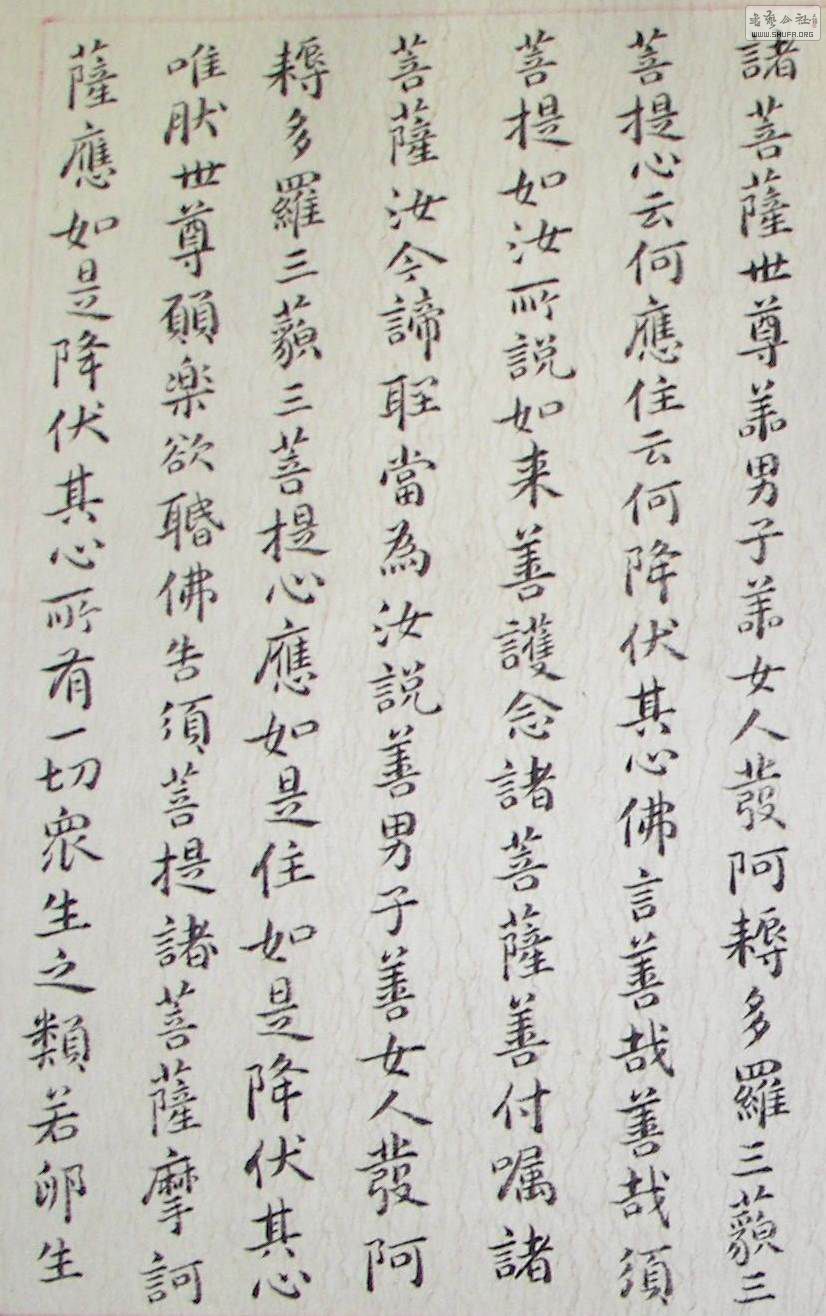 諸菩薩世尊善男子善女人發阿耨多羅三藐三
菩提心云何應住云何降伏其心佛言善哉善哉須
菩提如汝所說如来善護念諸菩薩善付嘱諸
菩薩汝今諦聽當為汝說善男子善女人發阿
耨多羅三藐三菩提心應如是住如是降伏其心
唯然世尊願楽欲聞佛告須菩提諸菩薩摩訶
薩應如是降伏其心所有一切衆生之類若卵生
書藝公社
WWW.SHUFA.ORG